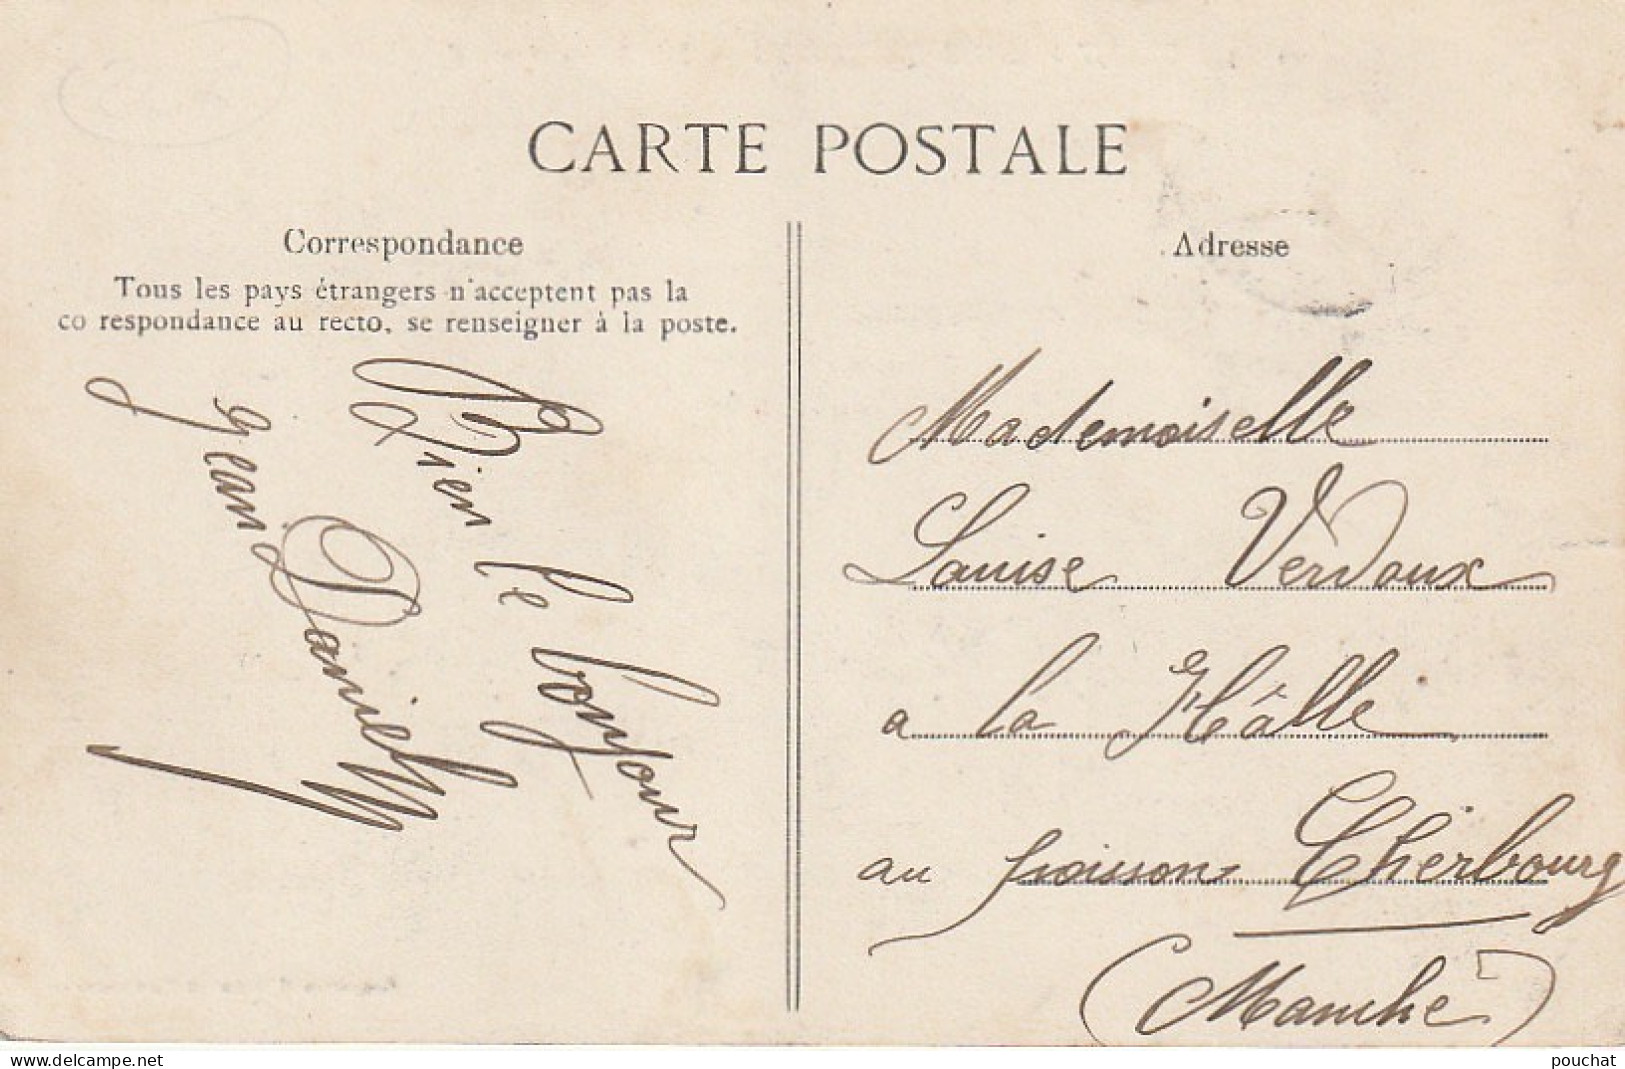 CARTE POSTALE
Correspondance
Tous les pays étrangers n'acceptent pas la
co respondance au recto, se renseigner à la poste.
Bien le bonjour
Jean Daniel
Adresse
Mademoiselle
Louise Verdoux
a la Hâlle
au poissons Cherbourg
(Manche)
www.delcampe.net
pouchat